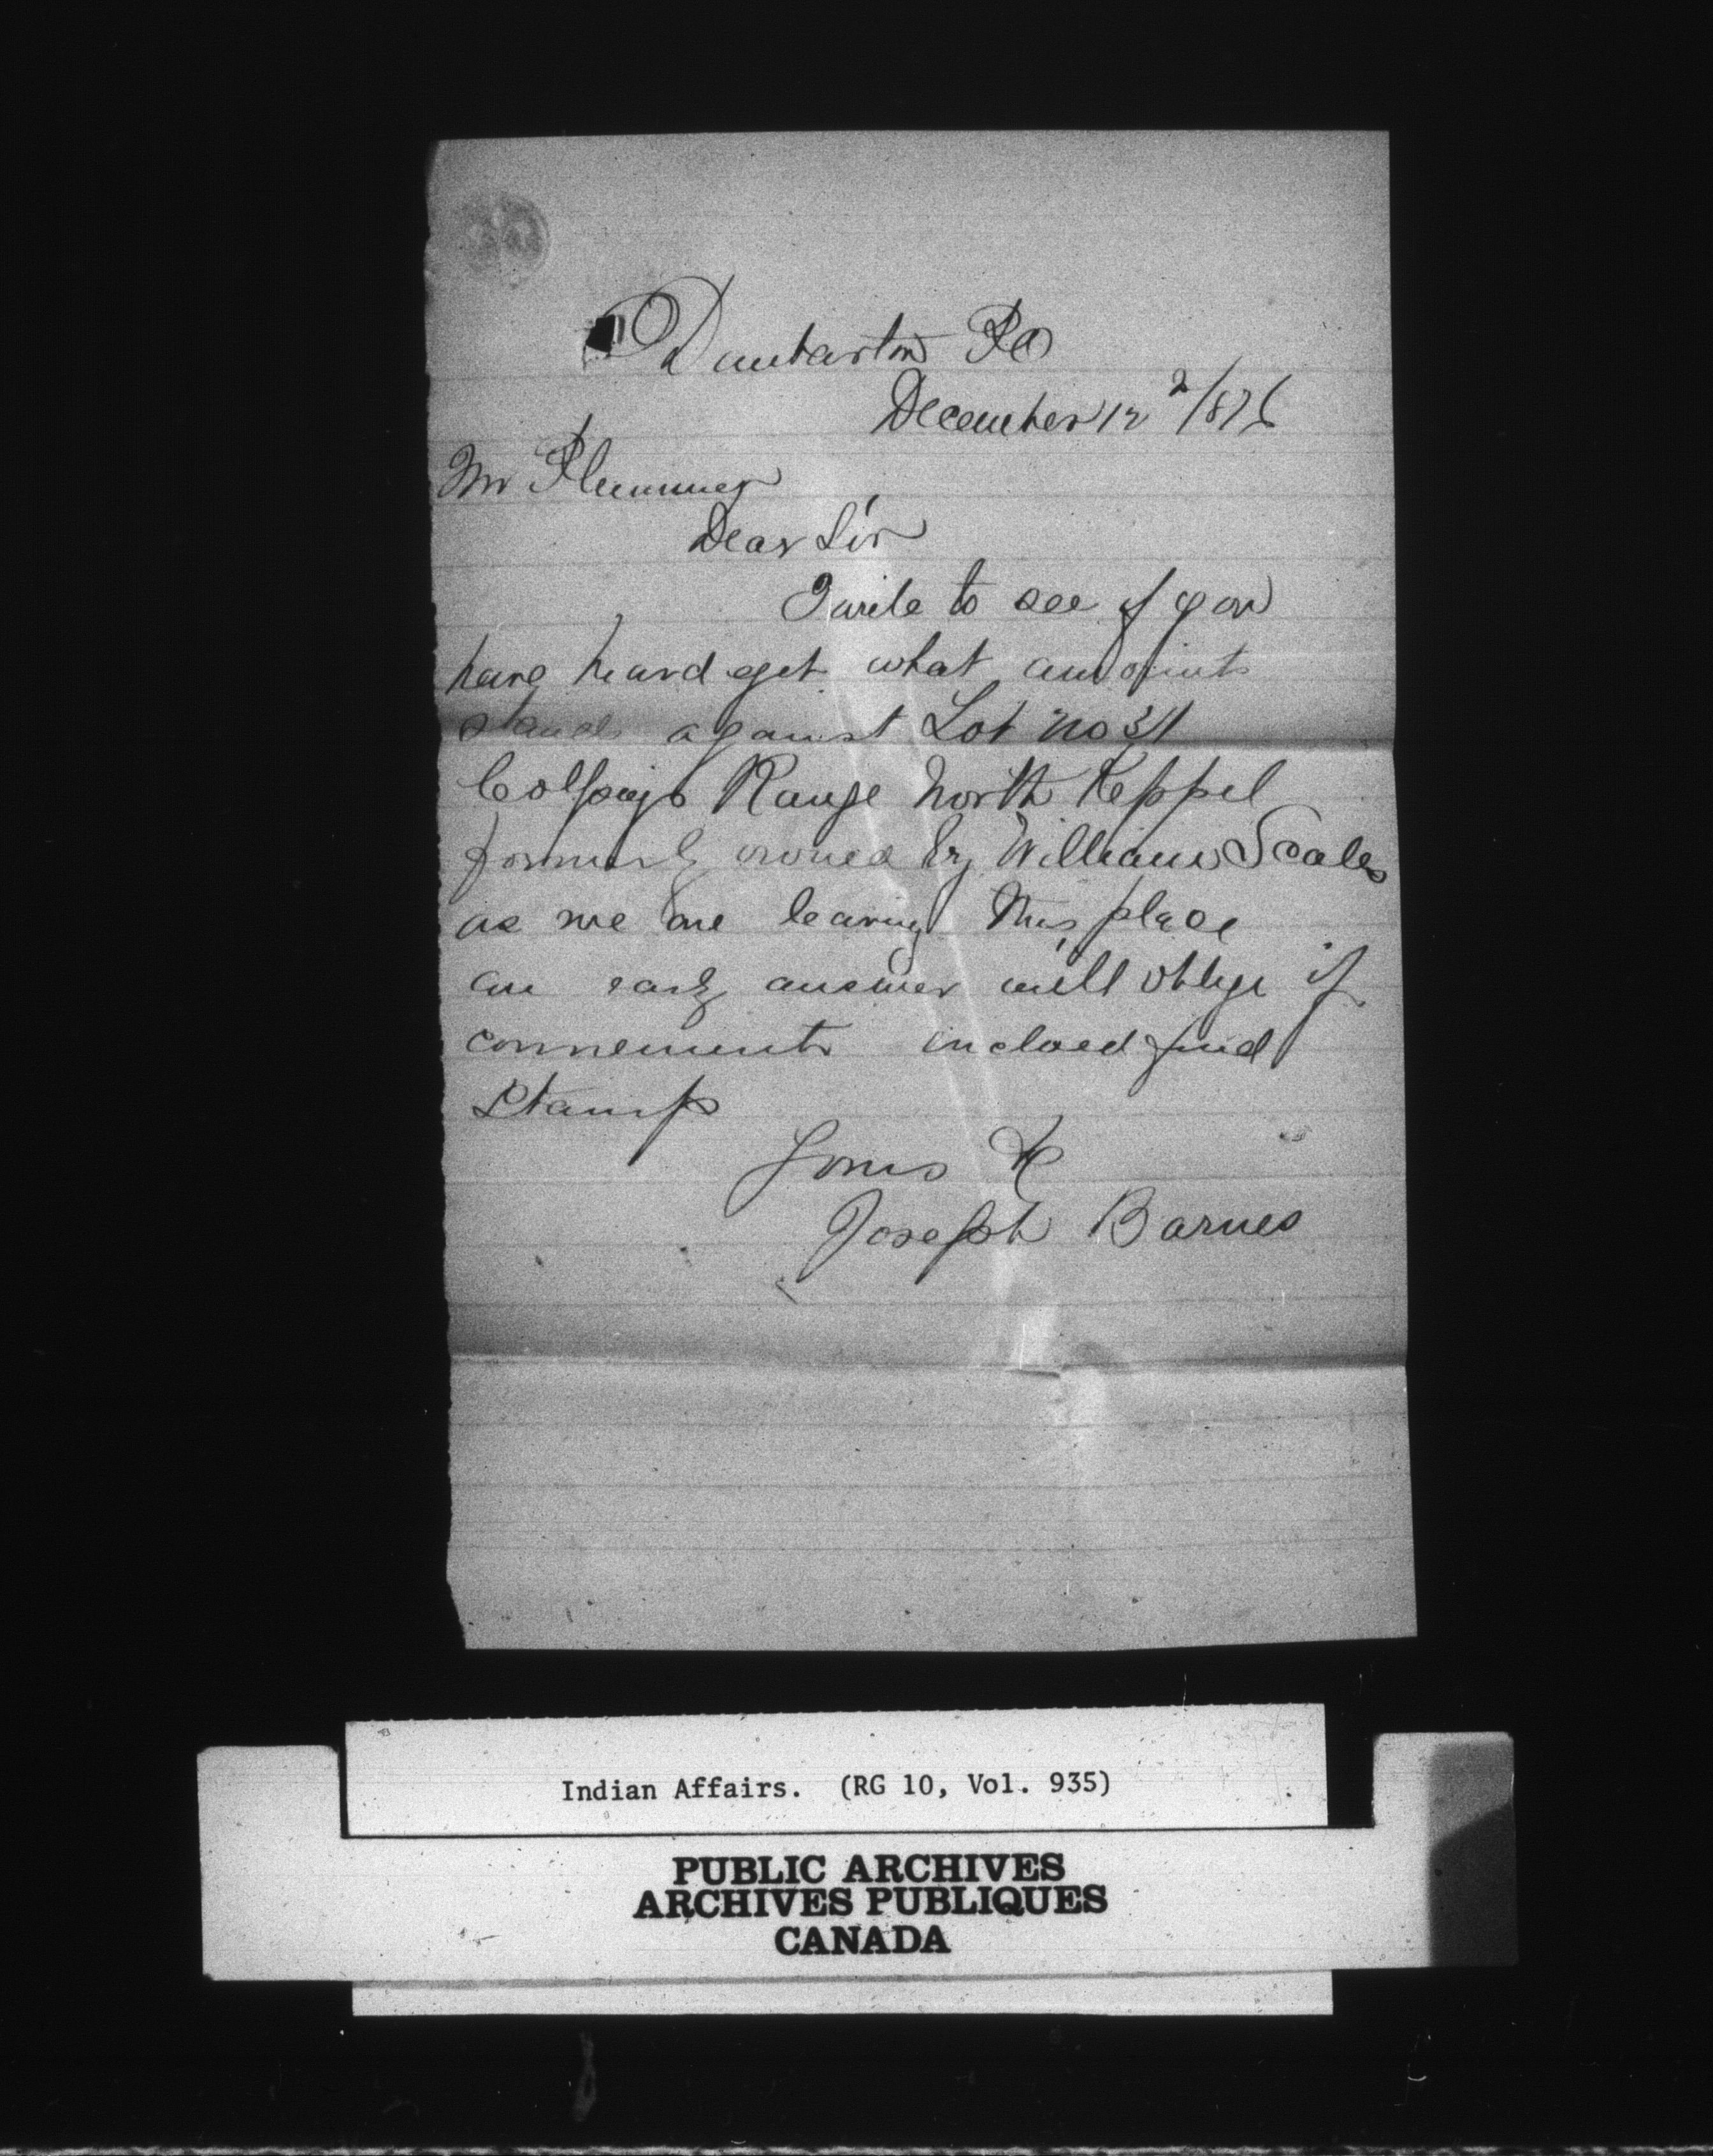 Dumbarton PO
December 12 2/876
Mr Plummer
Dear Sir
I write to see if you
have heard yet what amount
stands against Lot No 31
Colpoys Range North Keppel
formerly owned by William Scales
as we are leaving this place
an early answer will oblige if
convenient inclosed find
Stamp
Yours &c
Joseph Barnes
Indian Affairs. (RG 10, Vol. 935)
PUBLIC ARCHIVES
ARCHIVES PUBLIQUES
CANADA